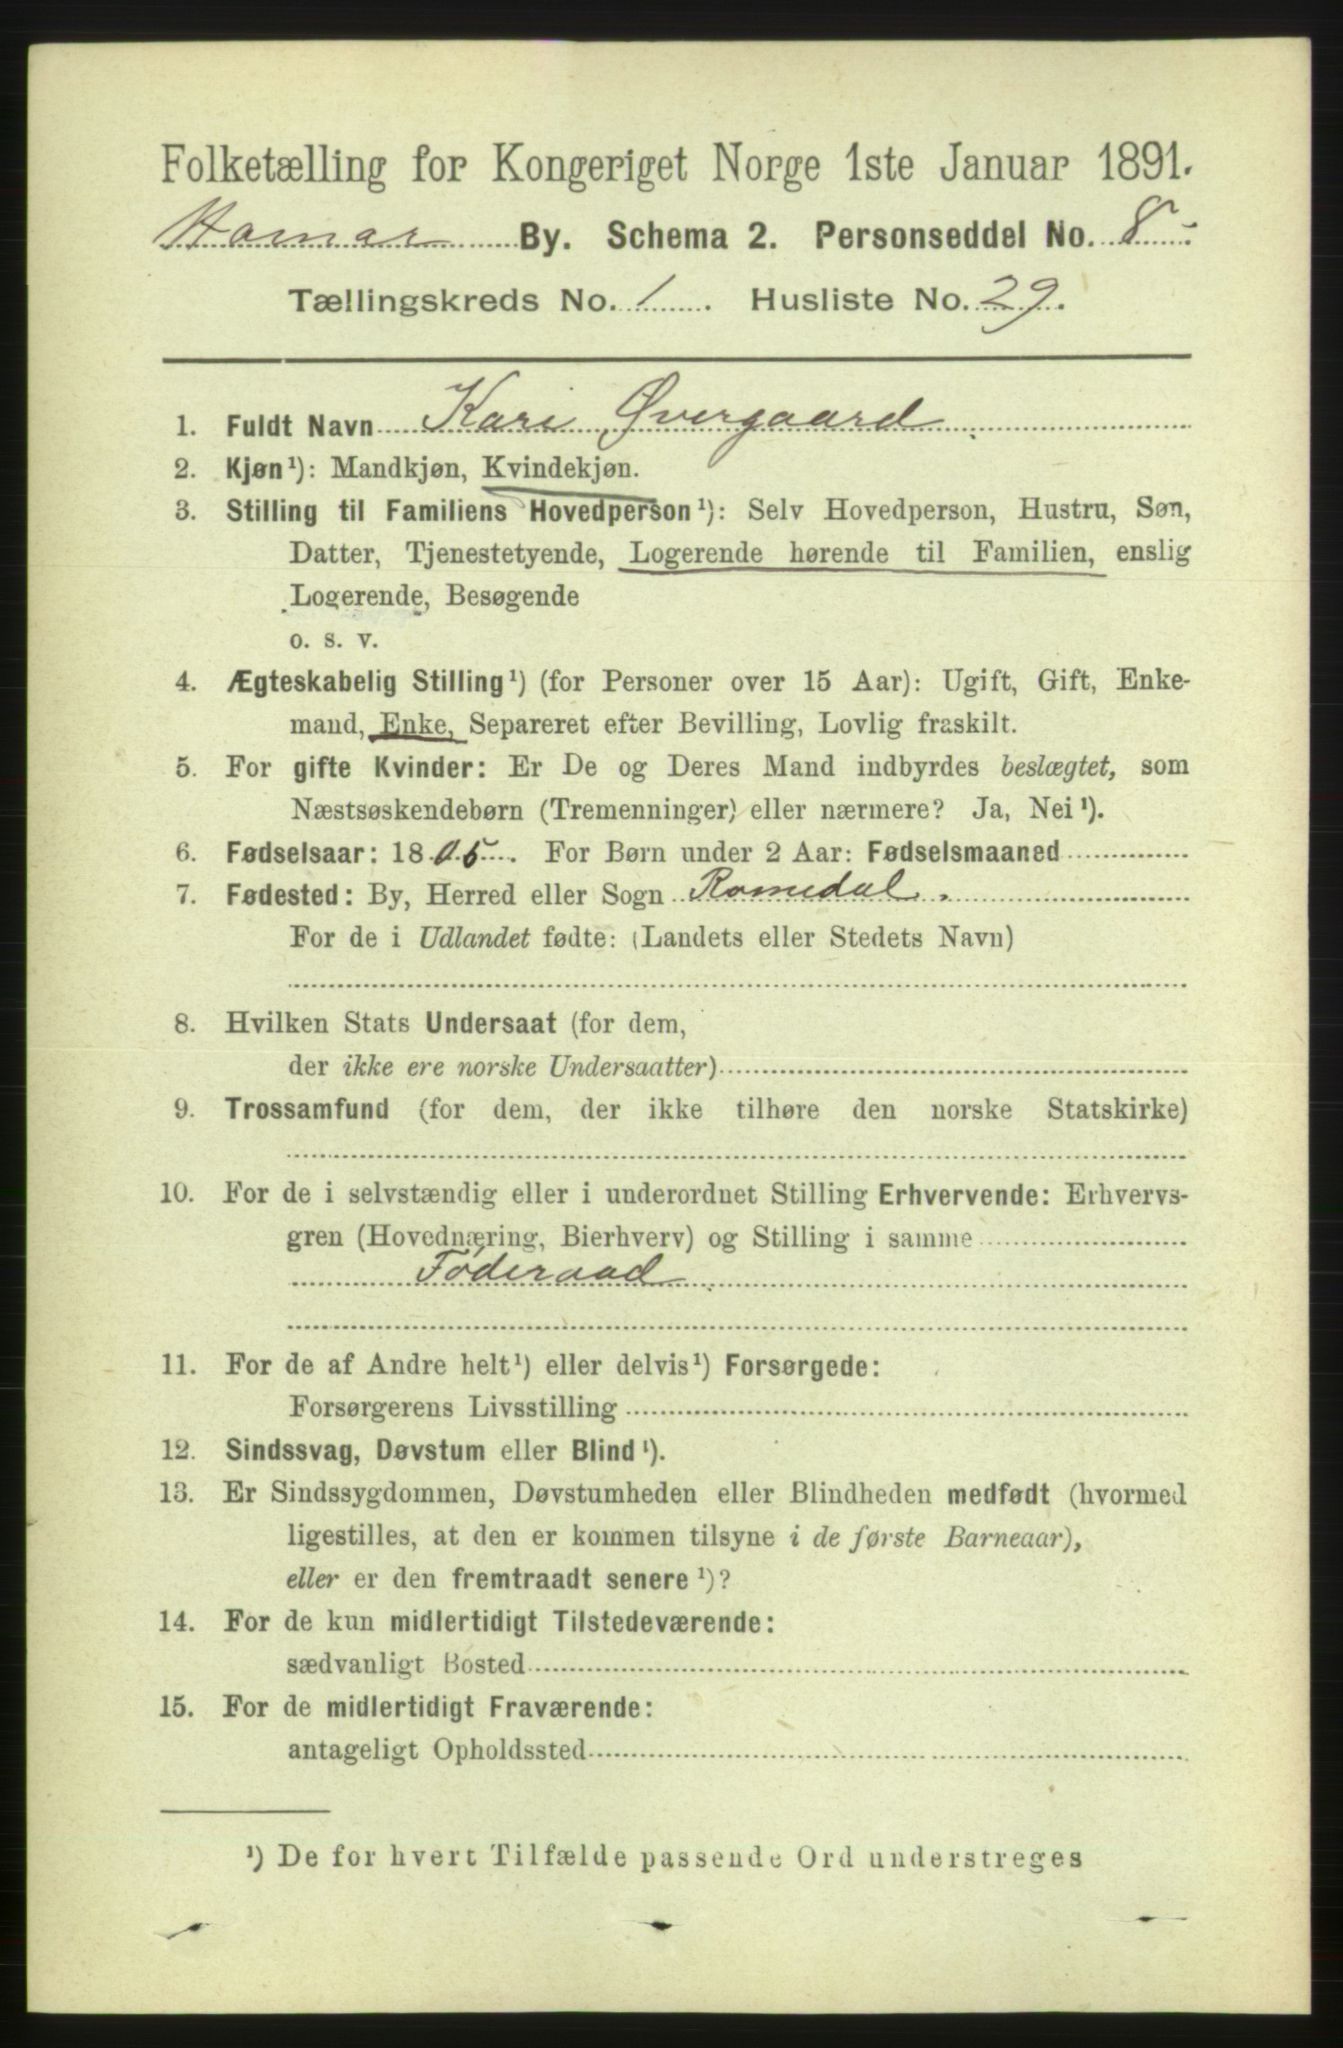 Folketælling for Kongeriget Norge 1ste Januar 1891.
Hamar By. Schema 2. Personseddel No. 8
Tællingskreds No. 1. Husliste No. 29.
1. Fuldt Navn Kari Øvergaard
2. Kjøn¹): Mandkjøn, Kvindekjøn.
3. Stilling til Familiens Hovedperson¹): Selv Hovedperson, Hustru, Søn,
Datter, Tjenestetyende, Logerende hørende til Familien, enslig
Logerende, Besøgende
o. s. v.
4. Ægteskabelig Stilling¹) (for Personer over 15 Aar): Ugift, Gift, Enke-
mand, Enke, Separeret efter Bevilling, Lovlig fraskilt.
5. For gifte Kvinder: Er De og Deres Mand indbyrdes beslægtet, som
Næstsøskendebørn (Tremenninger) eller nærmere? Ja, Nei¹).
6. Fødselsaar: 1805. For Børn under 2 Aar: Fødselsmaaned
7. Fødested: By, Herred eller Sogn Romedal.
For de i Udlandet fødte: (Landets eller Stedets Navn)
8. Hvilken Stats Undersaat (for dem,
der ikke ere norske Undersaatter)
9. Trossamfund (for dem, der ikke tilhøre den norske Statskirke)
10. For de i selvstændig eller i underordnet Stilling Erhvervende: Erhvervs-
gren (Hovednæring, Bierhverv) og Stilling i samme
Føderaad
11. For de af Andre helt¹) eller delvis¹) Forsørgede:
Forsørgerens Livsstilling
12. Sindssvag, Døvstum eller Blind¹).
13. Er Sindssygdommen, Døvstumheden eller Blindheden medfødt (hvormed
ligestilles, at den er kommen tilsyne i de første Barneaar),
eller er den fremtraadt senere¹)?
14. For de kun midlertidigt Tilstedeværende:
sædvanligt Bosted
15. For de midlertidigt Fraværende:
antageligt Opholdssted
¹) De for hvert Tilfælde passende Ord understreges